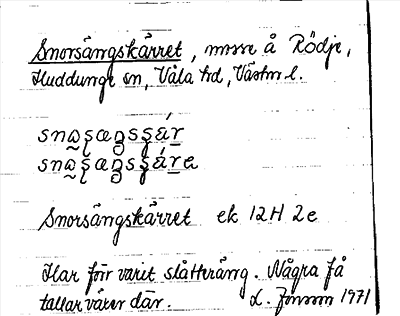 Snorsängskärret, mosse å Rödje,
Huddunge sn, Våla hd, Västm l.
Snorsängskärret ek 12H 2e
Har förr varit slåtteräng. Några få
tallar växer där. L. Jönsson 1971